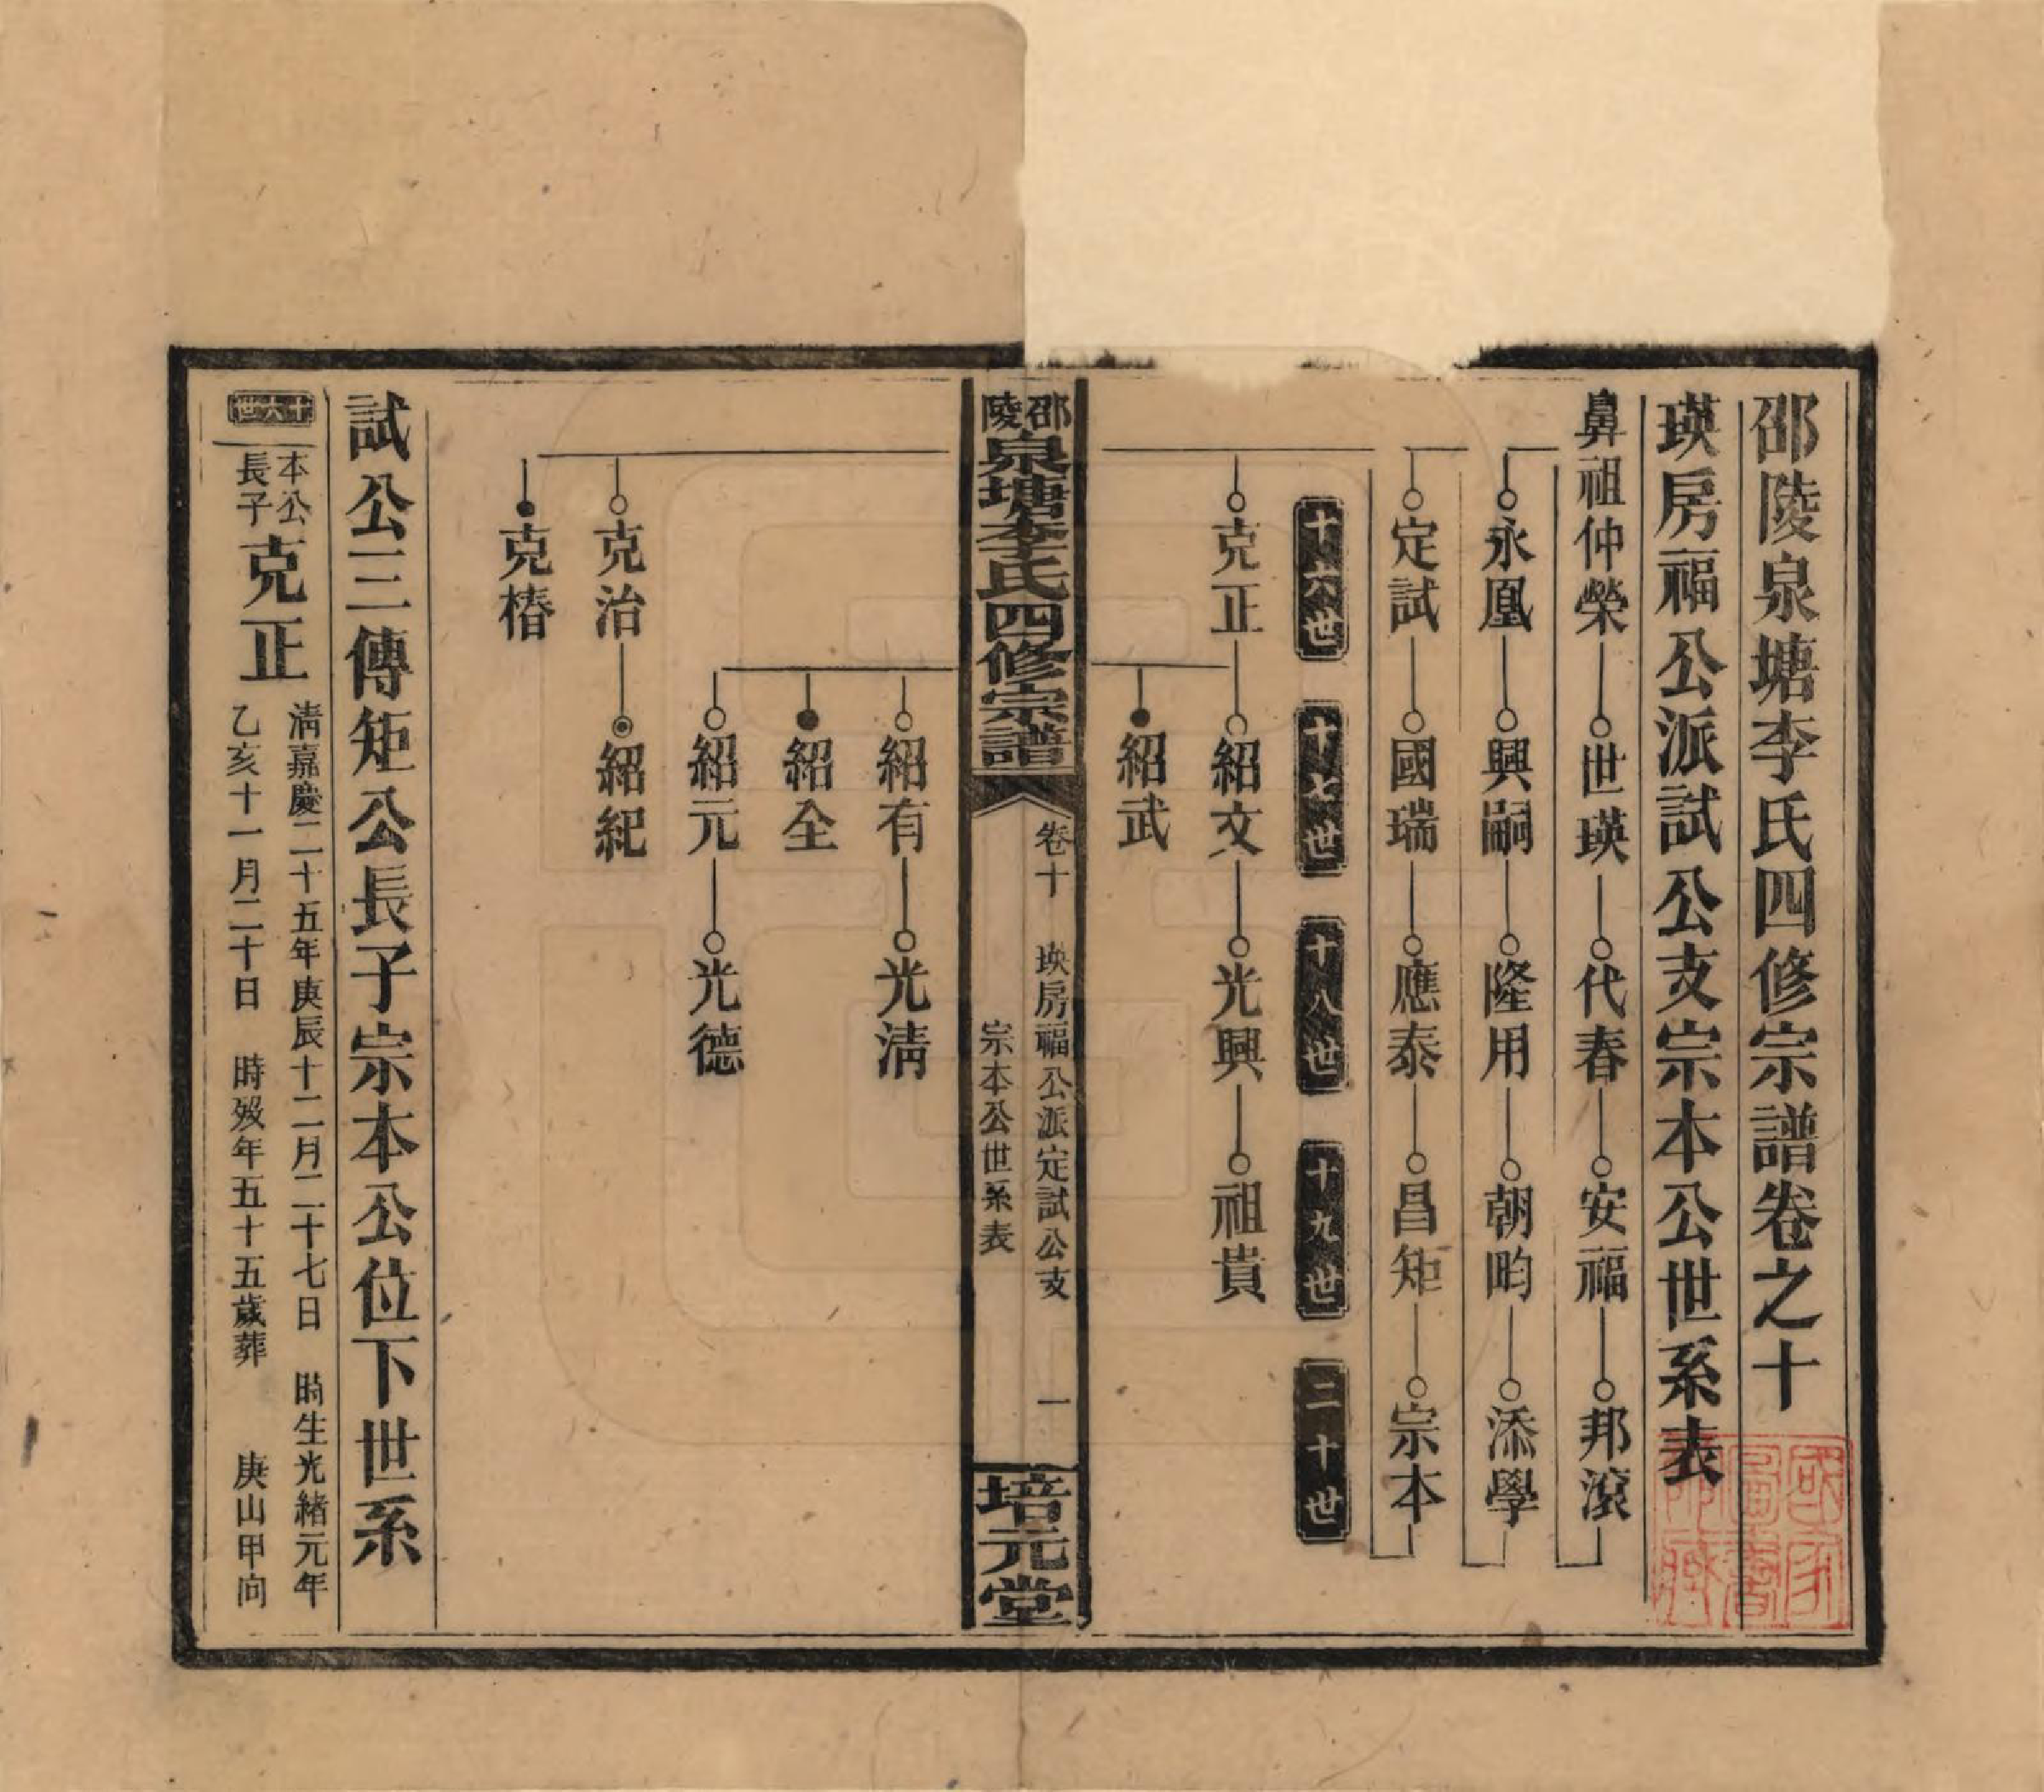 邵陵泉塘李氏四修宗譜卷之十
瑛房福公派試公支宗本公世系表
鼻祖仲榮 世瑛 代春 安福 邦滾
永凰 興嗣 隆用 朝畇 添學
定試 國瑞 應泰 昌矩 宗本
十六世 十七世 十八世 十九世 二十世
克正 紹文 光興 祖貴
紹武
邵陵泉塘李氏四修宗譜
卷十 瑛房福公派定試公支 一
宗本公世系表
培元堂
紹有 光淸
紹全
紹元 光德
克治 紹紀
克椿
試公三傳矩公長子宗本公位下世系
十六世
本公長子 克正 淸嘉慶二十五年庚辰十二月二十七日 時生光緒元年
乙亥十一月二十日 時歿年五十五歲葬 庚山甲向
國家圖書館藏